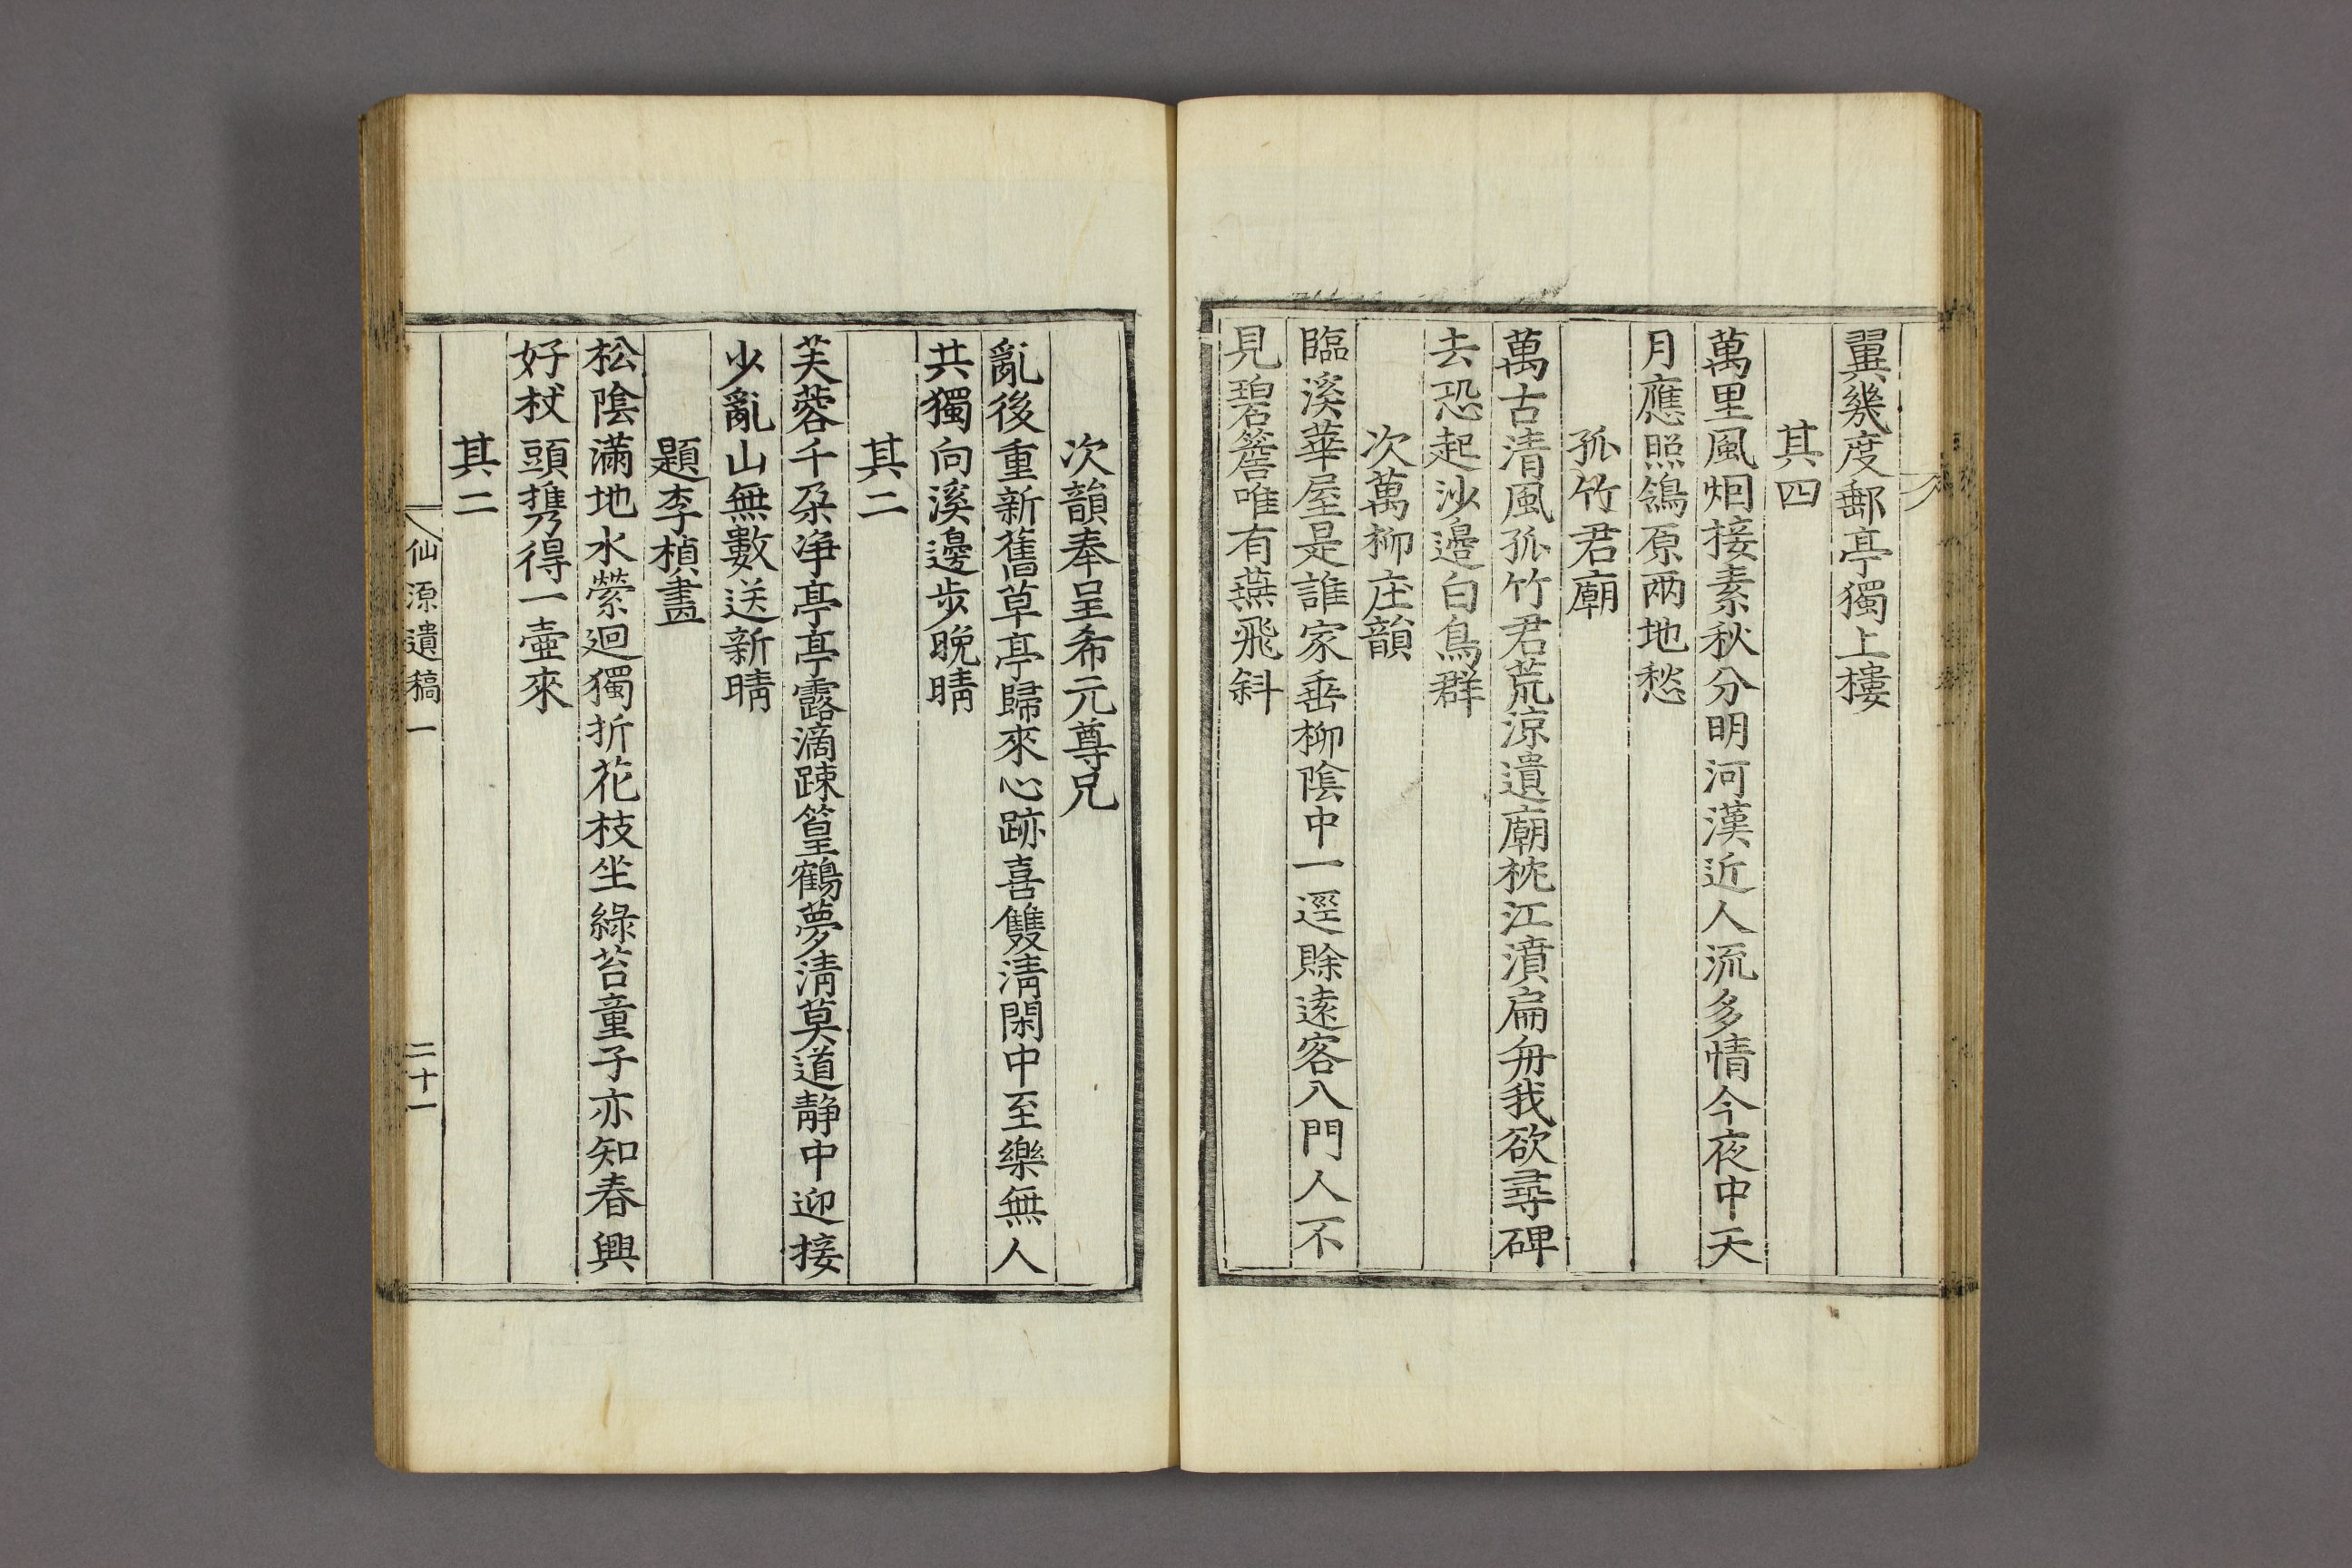 翼幾度郵亭獨上樓
其四
萬里風烟接素秋分明河漢近人流多情今夜中天
月應照鴒原兩地愁
孤竹君廟
萬古清風孤竹君荒涼遺廟枕江濆扁舟我欲尋碑
去恐起沙邊白鳥群
次萬柳庄韻
臨溪華屋是誰家垂柳陰中一逕賖遠客入門人不
見碧簷唯有燕飛斜
次韻奉呈希元尊兄
亂後重新舊草亭歸來心跡喜雙淸閑中至樂無人
共獨向溪邊步晩晴
其二
芙蓉千朶净亭亭露滴踈篁鶴夢淸莫道靜中迎接
少亂山無數送新晴
題李楨畫
松陰滿地水縈迴獨折花枝坐綠苔童子亦知春興
好杖頭携得一壷來
其二
仙源遺稿一
二十一